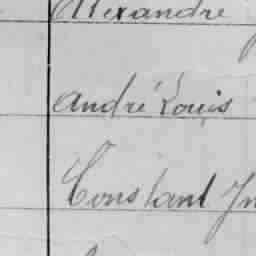 Alexandre
André Louis
Constant